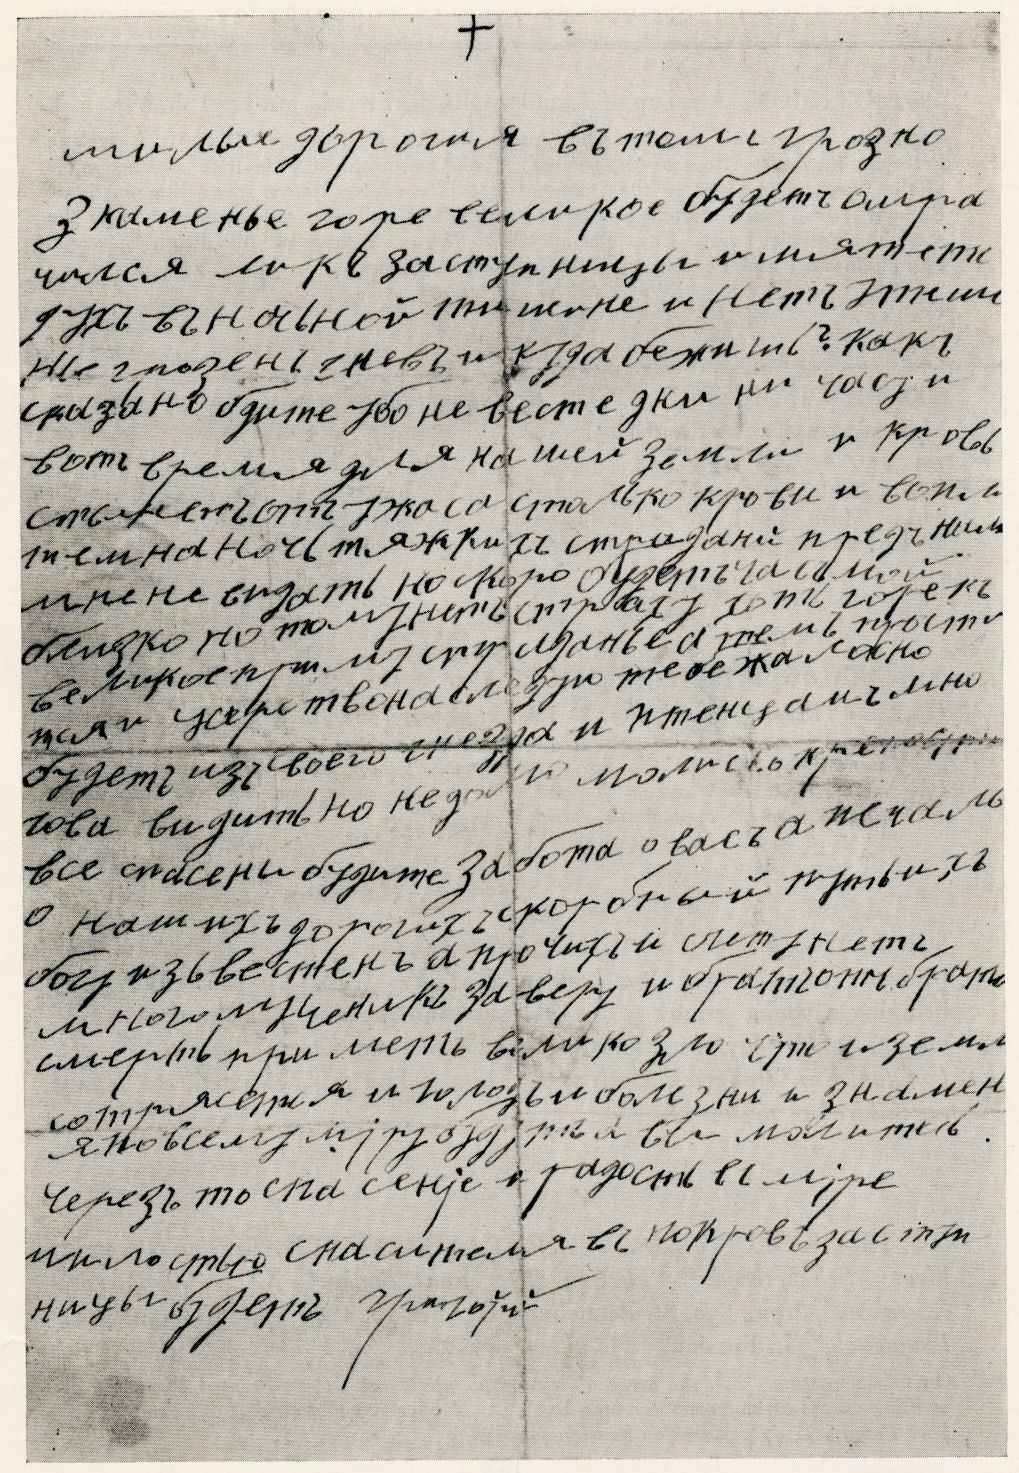 милые дорогия въ томъ грозно
знаменье горе великое будетъ омра
чился ликъ заступницы и мятетъ
духъ въ ночьной тишине и нетъ утиши
же грозенъ гневъ и куда бежишь? какъ
сказано бдите убо не весте дни ни часу и
вотъ время для нашей земли и кровь
стынетъ отъ ужаса столько крови и вопли
темна ночь тяжкихъ страдани предъ ними
мне не видать но скоро будетъ часъ мой
близко но тому нетъ страху хоть горекъ
великое приму страданье а темъ прости
тся и царетво наследую тебе жалосно
будетъ изъ своего гнезда и птенцамъ мно
гова видить но недолго молись о
все спасены будите забота о васъ а печаль
о нашихъ дорогихъ скорбный путь ихъ
богу изьвестенъ а прочихъ и сметунетъ
многомученикъ за веру и братъ отъ брата
смерть приметъ велико зло что и земли
сотрясется и голодъ и болезни и знамен
я по всему мiру будутъ я вы молитесь.
черезъ то спасенje и радость въ мjре
милостью спасителя въ покровъ засту
ницы будетъ григорий